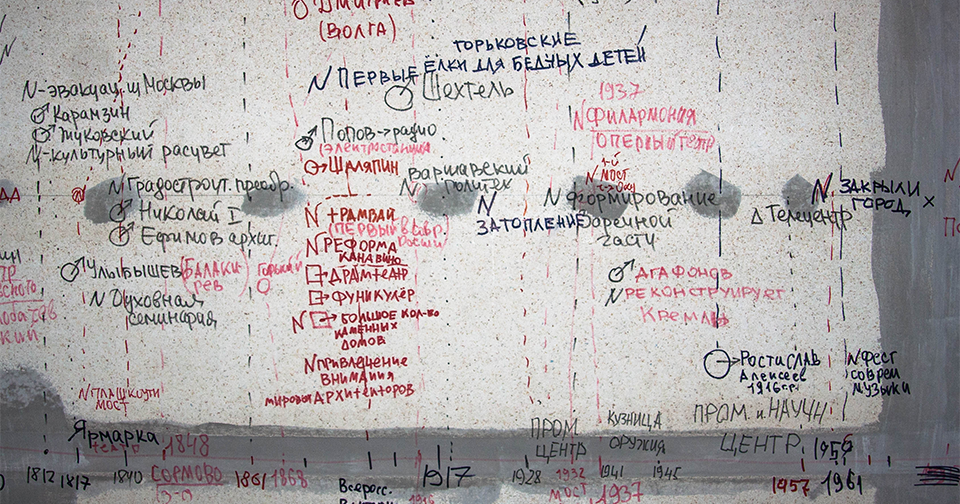 Дмитриев
(ВОЛГА)
ГОРЬКОВСКИЕ
N ПЕРВЫЕ ЁЛКИ ДЛЯ БЕДНЫХ ДЕТЕЙ
Шехтель
N-эвакуац. ц Москвы
Карамзин
Жуковский
N-культурный расцвет
N Градостроит. преобр.
Николай I
Ефимов архит.
Улыбышев
(БАЛАКИРЕВ)
Горький
N Духовная
семинария
N ПЛАШКОУТН
МОСТ
Попов→радио
(электростанция
ШАЛЯПИН
N ТРАМВАЙ
(ПЕРВЫЙ В
России
N РЕФОРМА
КАНАВИНО
ДРАМТЕАТР
ФУНИКУЛЁР
N БОЛЬШОЕ КОЛ-ВО
КАМЕННЫХ
ДОМОВ
N ПРИВЛЕЧЕНИЕ
ВНИМАНИЯ
МИРОВЫХ АРХИТЕКТОРОВ
ВАРШАВСКИЙ
N ПОЛИТЕХ
N
ЗАТОПЛЕНИЕ
1937
N ФИЛАРМОНИЯ
ОПЕРНЫЙ ТЕАТР
N 1-Й
МОСТ
N ФОРМИРОВАНИЕ
Заречной
части
АГАФОНОВ
N РЕКОНСТРУИРУЕТ
Кремль
Δ Телецентр
N ЗАКРЫЛИ
ГОРОД
РОСТИСЛАВ
Алексеев
1916 г.р.
N ФЕСТ
СОВРЕМ
МУЗЫКИ
Ярмарка
ТЕАТР 1848
ПРОМ
ЦЕНТР
КУЗНИЦА
ОРУЖИЯ
ПРОМ и НАУЧН
ЦЕНТР
1956
1812 1817 1840 СОРМОВО 1861 1868 1917 1928 1932 1941 1945 1957 1961
Всеросс.
1916
МОСТ 1937